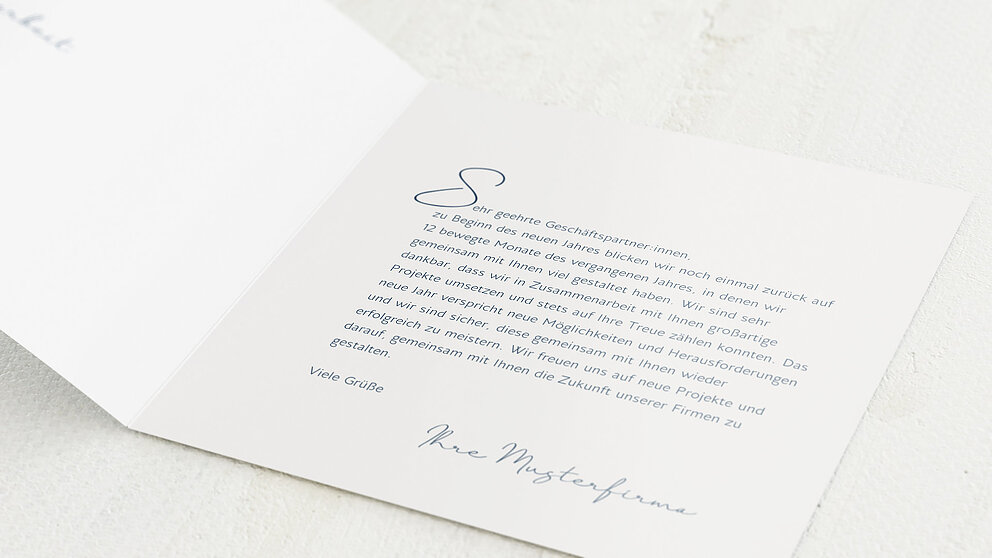 Sehr geehrte Geschäftspartner:innen,
zu Beginn des neuen Jahres blicken wir noch einmal zurück auf
12 bewegte Monate des vergangenen Jahres, in denen wir
gemeinsam mit Ihnen viel gestaltet haben. Wir sind sehr
dankbar, dass wir in Zusammenarbeit mit Ihnen großartige
Projekte umsetzen und stets auf Ihre Treue zählen konnten. Das
neue Jahr verspricht neue Möglichkeiten und Herausforderungen
und wir sind sicher, diese gemeinsam mit Ihnen wieder
erfolgreich zu meistern. Wir freuen uns auf neue Projekte und
darauf, gemeinsam mit Ihnen die Zukunft unserer Firmen zu
gestalten.
Viele Grüße
Ihre Musterfirma